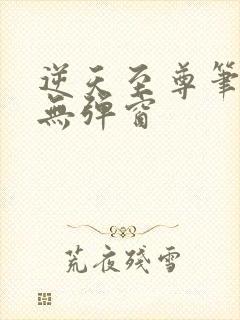 逆天至尊筆
無彈窗
荒夜殘雪